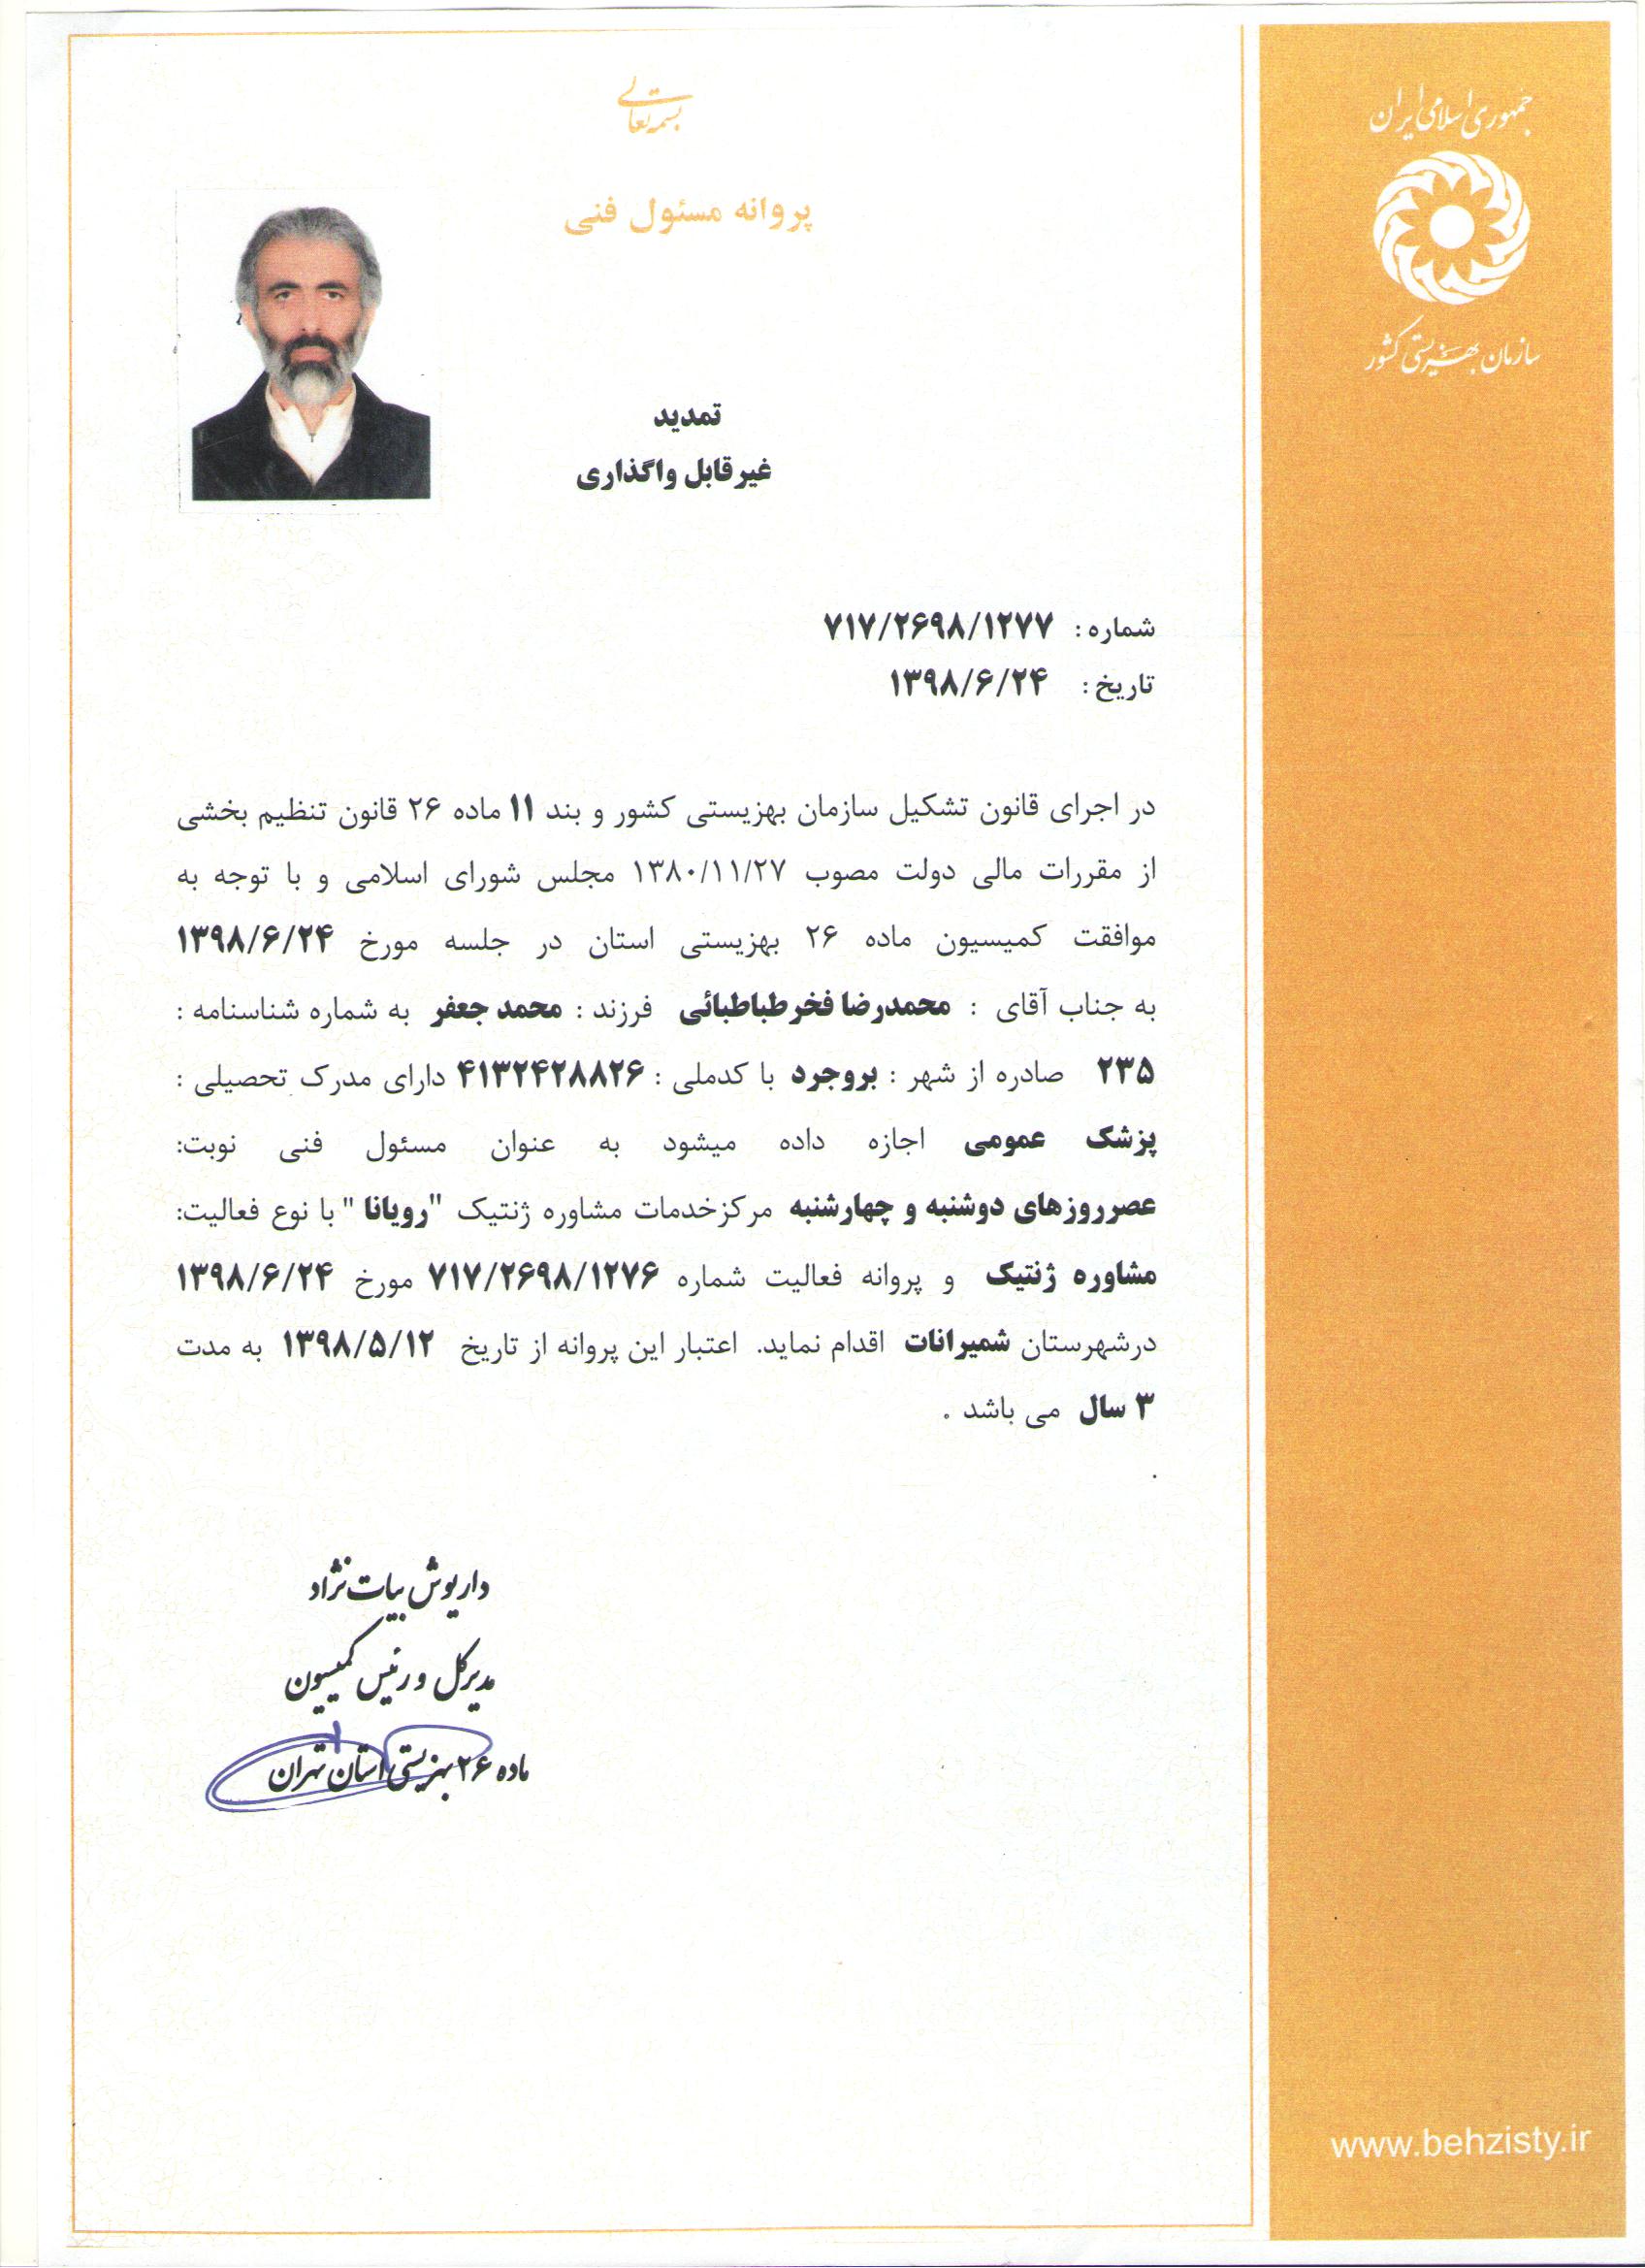 جمهوری اسلامی ایران
سازمان بهزیستی کشور
بسمه تعالی
پروانه مسئول فنی
تمدید
غیرقابل واگذاری
شماره : ۷۱۷/۲۶۹۸/۱۲۷۷
تاریخ : ۱۳۹۸/۶/۲۴
در اجرای قانون تشکیل سازمان بهزیستی کشور و بند ۱۱ ماده ۲۶ قانون تنظیم بخشی
از مقررات مالی دولت مصوب ۱۳۸۰/۱۱/۲۷ مجلس شورای اسلامی و با توجه به
موافقت کمیسیون ماده ۲۶ بهزیستی استان در جلسه مورخ ۱۳۹۸/۶/۲۴
به جناب آقای : محمدرضا فخرطباطبائی فرزند : محمد جعفر به شماره شناسنامه :
۲۳۵ صادره از شهر : بروجرد با کدملی : ۴۱۳۲۴۲۸۸۲۶ دارای مدرک تحصیلی :
پزشک عمومی اجازه داده میشود به عنوان مسئول فنی نوبت:
عصرروزهای دوشنبه و چهارشنبه مرکزخدمات مشاوره ژنتیک "رویانا" با نوع فعالیت:
مشاوره ژنتیک و پروانه فعالیت شماره ۷۱۷/۲۶۹۸/۱۲۷۶ مورخ ۱۳۹۸/۶/۲۴
درشهرستان شمیرانات اقدام نماید. اعتبار این پروانه از تاریخ ۱۳۹۸/۵/۱۲ به مدت
۳ سال می باشد .
.
داریوش بیات نژاد
مدیرکل و رئیس کمیسیون
ماده ۲۶ بهزیستی استان تهران
www.behzisty.ir